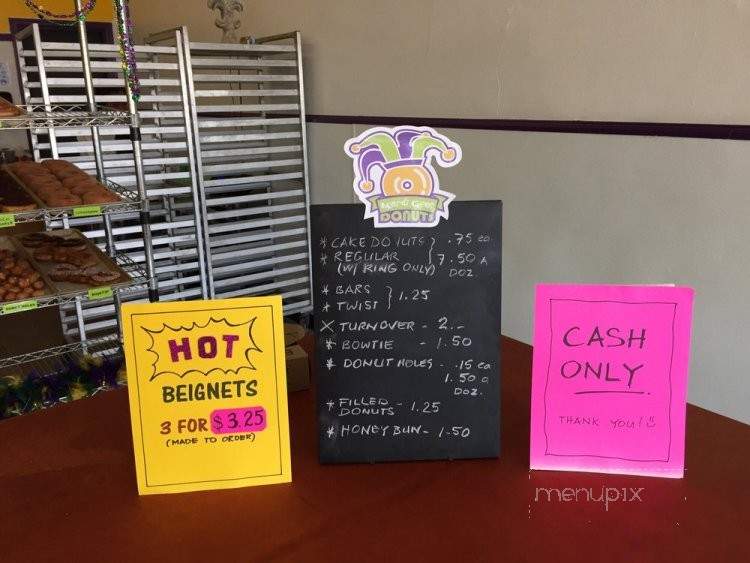 Mardi Gras
DONUTS
* CAKE DONUTS } .75 ea
* REGULAR
(W/ RING ONLY) 7.50 A
DOZ
* BARS
* TWIST } 1.25
X TURNOVER - 2.-
* BOWTIE - 1.50
* DONUT HOLES - .15 ea
1.50 a
DOZ.
* FILLED
DONUTS - 1.25
* HONEY BUN - 1.50
HOT
BEIGNETS
3 FOR $3.25
(MADE TO ORDER)
CASH
ONLY
THANK YOU!
menupix